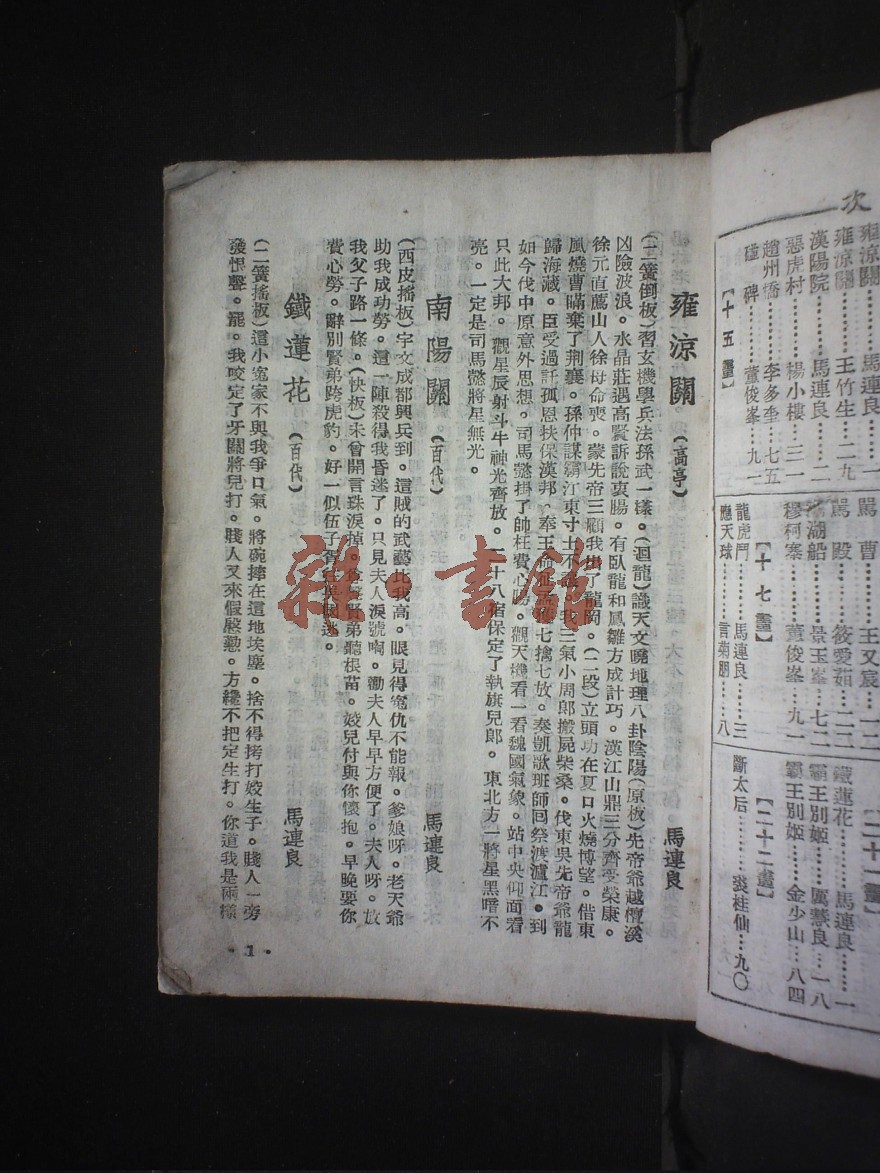 次
雍涼關⋯⋯馬連良⋯⋯一
雍涼關⋯⋯王竹生⋯二九
漢陽院⋯⋯馬連良⋯⋯二
惡虎村⋯⋯楊小樓⋯三一
趙州橋⋯⋯李多奎⋯七五
碰碑⋯⋯董俊峯⋯九一
【十五畫】
罵曹⋯⋯王又宸⋯一二
罵殿⋯⋯筱愛茹⋯二二
湖船⋯⋯景玉峯⋯七二
穆柯寨⋯⋯董俊峯⋯九一
【十七畫】
龍虎鬥⋯⋯馬連良⋯⋯三
應天球⋯⋯言菊朋⋯⋯八
【二十一畫】
鐵蓮花⋯⋯馬連良⋯⋯一
霸王別姬⋯⋯厲慧良⋯一八
霸王別姬⋯⋯金少山⋯八四
【二十二畫】
斷太后⋯⋯裘桂仙⋯九〇
雍涼關(高亭) 馬連良
(二簧倒板)習玄機學兵法孫武一樣。(迴龍)識天文曉地理八卦陰陽(原板)先帝爺越檀溪
凶險波浪。水晶莊遇高賢訴說衷腸。有臥龍和鳳雛方成計巧。漢江山鼎三分齊受榮康。
徐元直薦山人徐母命喪。蒙先帝三顧我掛了龍岡。(二段)立頭功在夏口火燒博望。借東
風燒曹瞞棄了荆襄。孫仲謀霸江東寸土不 我三氣小周郎搬屍柴桑。伐東吳先帝爺龍
歸海藏。臣受過託孤恩扶保漢邦。奉王 七擒七放。奏凱歌班師回祭滅瀘江。到
如今伐中原意外思想。司馬懿掛了帥枉費心腸。觀天機看一看魏國氣象。站中央仰面看
只此大邦。觀星辰射斗牛神光齊放。二十八宿保定了執旗兒郎。東北方一將星黑暗不
亮。一定是司馬懿將星無光。
南陽關(百代) 馬連良
(西皮搖板)宇文成都興兵到。這賊的武藝比我高。眼見得寃仇不能報。爹娘呀。老天爺
助我成功勞。這一陣殺得我昏迷了。只見夫人淚號啕。勸夫人早早方便了。夫人呀。放
我父子路一條。(快板)未曾開言珠淚掉。 賢弟聽根苗。姣兒付與你懷抱。早晚要你
費心勞。辭別賢弟跨虎豹。好一似伍子胥 逃。
鐵蓮花(百代) 馬連良
(二簧搖板)這小寃家不與我爭口氣。將碗摔在這地埃塵。捨不得拷打姣生子。賤人一旁
發恨聲。罷。我咬定了牙關將兒打。賤人又來假慇懃。方纔不把定生打。你道我是兩樣
·1·
雜·書館